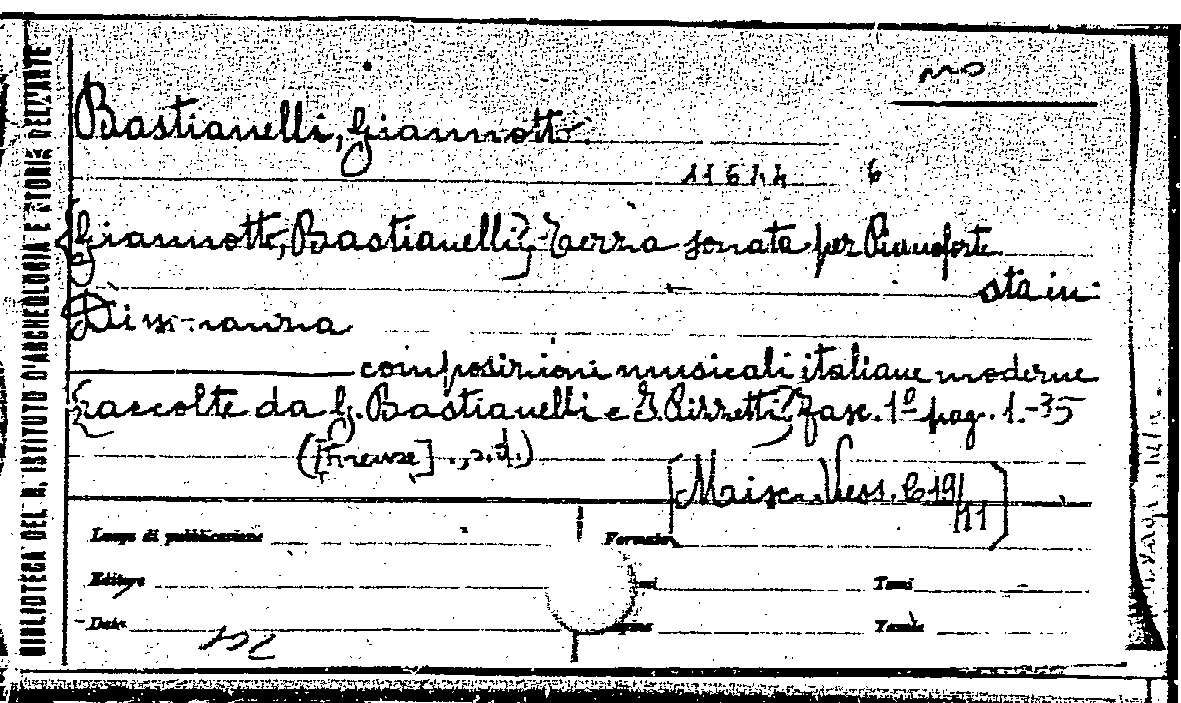 BIBLIOTECA DEL R. ISTITUTO D'ARCHEOLOGIA E STORIA DELL'ARTE
Bastianelli, Giannotto.
11644 6
Giannotto, Bastianelli, Terza sonata per Pianoforte
sta in:
Dissonanza
composizioni musicali italiane moderne
raccolte da G. Bastianelli e I. Pizzetti, fasc. 1º pag. 1.-35
([Firenze]., s.d.)
[Misc. Vess. B 19/11]
Luogo di pubblicazione
Formato
Editore
Tomi
Data
Tavole